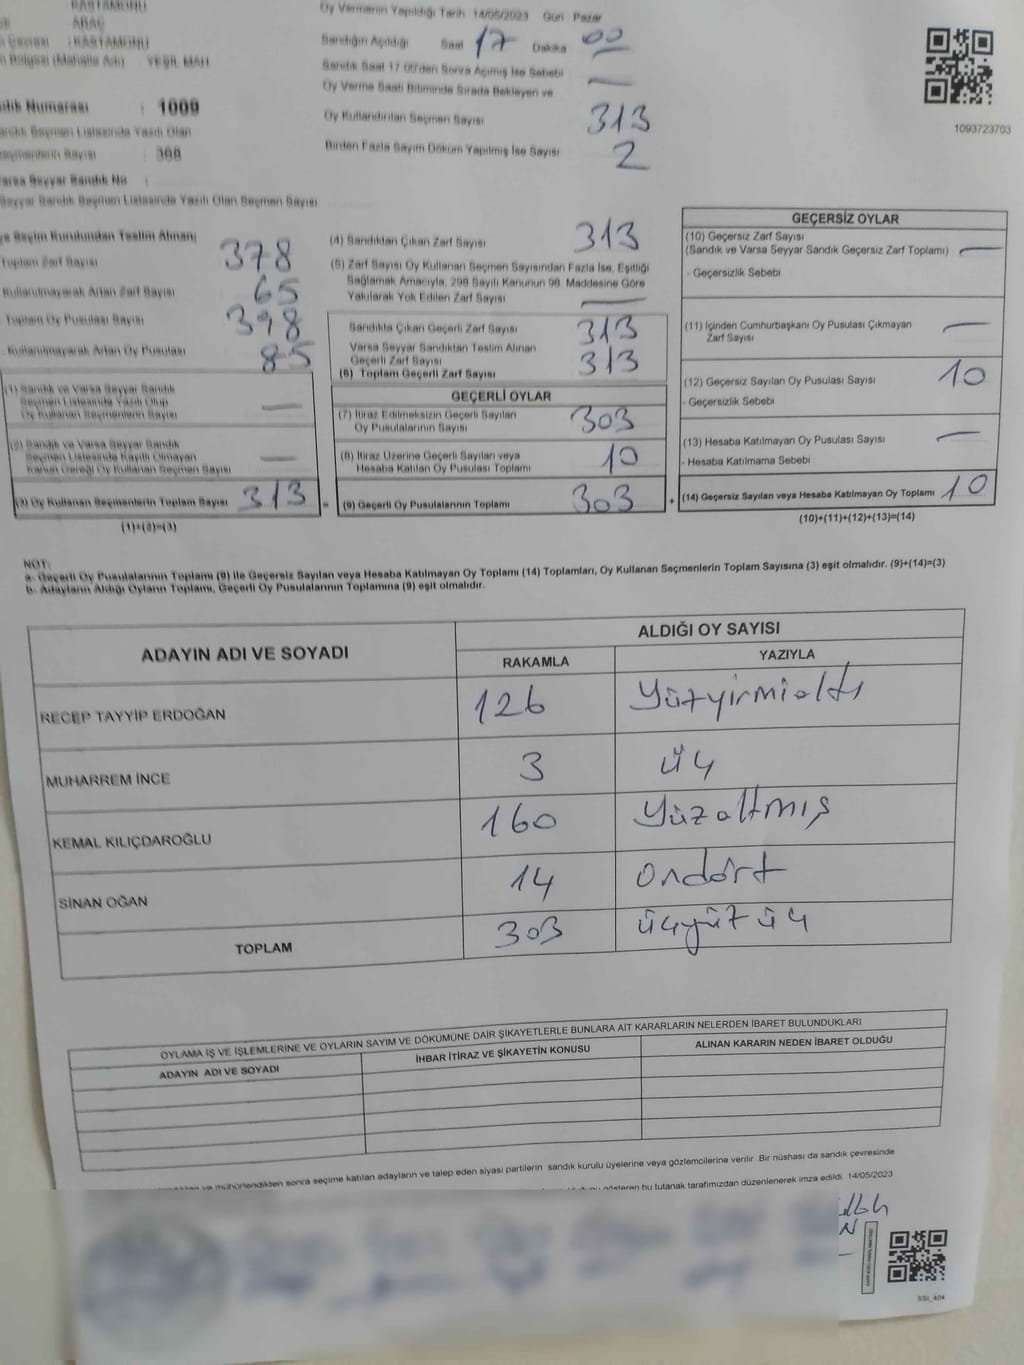 KASTAMONU
ARAÇ
: KASTAMONU
Bölgesi (Mahalle Adı) : YEŞİL MAH.
Numarası : 1009
Seçmen Listesinde Yazılı Olan
Seçmenlerin Sayısı : 368
Varsa Seyyar Sandık No :
Seyyar Sandık Seçmen Listesinde Yazılı Olan Seçmen Sayısı
Oy Vermenin Yapıldığı Tarih 14/05/2023 Gün : Pazar
Sandığın Açıldığı Saat 17 Dakika 00
Sandık Saat 17:00'den Sonra Açılmış İse Sebebi —
Oy Verme Saati Bitiminde Sırada Bekleyen ve
Oy Kullandırılan Seçmen Sayısı 313
Birden Fazla Sayım Döküm Yapılmış İse Sayısı 2
1093723703
Seçim Kurulundan Teslim Alınan;
Toplam Zarf Sayısı 378
Kullanılmayarak Artan Zarf Sayısı 65
Toplam Oy Pusulası Sayısı 398
Kullanılmayarak Artan Oy Pusulası 85
(1) Sandık ve Varsa Seyyar Sandık
Seçmen Listesinde Yazılı Olup
Oy Kullanan Seçmenlerin Sayısı —
(2) Sandık ve Varsa Seyyar Sandık
Seçmen Listesinde Kayıtlı Olmayan
Kanun Gereği Oy Kullanan Seçmen Sayısı —
(3) Oy Kullanan Seçmenlerin Toplam Sayısı 313
(1)+(2)=(3)
(4) Sandıktan Çıkan Zarf Sayısı 313
(5) Zarf Sayısı Oy Kullanan Seçmen Sayısından Fazla İse, Eşitliği
Sağlamak Amacıyla, 298 Sayılı Kanunun 98. Maddesine Göre
Yakılarak Yok Edilen Zarf Sayısı —
Sandıkta Çıkan Geçerli Zarf Sayısı 313
Varsa Seyyar Sandıktan Teslim Alınan
Geçerli Zarf Sayısı 313
(6) Toplam Geçerli Zarf Sayısı
GEÇERLİ OYLAR
(7) İtiraz Edilmeksizin Geçerli Sayılan
Oy Pusulalarının Sayısı 303
(8) İtiraz Üzerine Geçerli Sayılan veya
Hesaba Katılan Oy Pusulası Toplamı 10
= (9) Geçerli Oy Pusulalarının Toplamı 303
GEÇERSİZ OYLAR
(10) Geçersiz Zarf Sayısı
(Sandık ve Varsa Seyyar Sandık Geçersiz Zarf Toplamı) —
- Geçersizlik Sebebi
(11) İçinden Cumhurbaşkanı Oy Pusulası Çıkmayan
Zarf Sayısı —
(12) Geçersiz Sayılan Oy Pusulası Sayısı 10
- Geçersizlik Sebebi
(13) Hesaba Katılmayan Oy Pusulası Sayısı —
- Hesaba Katılmama Sebebi
+ (14) Geçersiz Sayılan veya Hesaba Katılmayan Oy Toplamı 10
(10)+(11)+(12)+(13)=(14)
NOT:
a- Geçerli Oy Pusulalarının Toplamı (9) ile Geçersiz Sayılan veya Hesaba Katılmayan Oy Toplamı (14) Toplamları, Oy Kullanan Seçmenlerin Toplam Sayısına (3) eşit olmalıdır. (9)+(14)=(3)
b- Adayların Aldığı Oyların Toplamı, Geçerli Oy Pusulalarının Toplamına (9) eşit olmalıdır.
ADAYIN ADI VE SOYADI ALDIĞI OY SAYISI
RAKAMLA YAZIYLA
RECEP TAYYİP ERDOĞAN 126 Yüzyirmialtı
MUHARREM İNCE 3 üç
KEMAL KILIÇDAROĞLU 160 Yüzaltmış
SİNAN OĞAN 14 ondört
TOPLAM 303 üçyüz üç
OYLAMA İŞ VE İŞLEMLERİNE VE OYLARIN SAYIM VE DÖKÜMÜNE DAİR ŞİKAYETLERLE BUNLARA AİT KARARLARIN NELERDEN İBARET BULUNDUKLARI
ADAYIN ADI VE SOYADI İHBAR İTİRAZ VE ŞİKAYETİN KONUSU ALINAN KARARIN NEDEN İBARET OLDUĞU
ve mühürlendikten sonra seçime katılan adayların ve talep eden siyasi partilerin sandık kurulu üyelerine veya gözlemcilerine verilir. Bir nüshası da sandık çevresinde
gösteren bu tutanak tarafımızdan düzenlenerek imza edildi. 14/05/2023
SSI_404